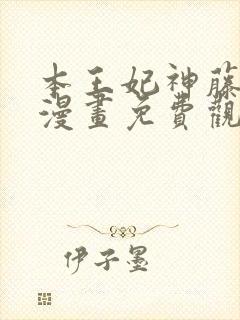 本王妃神藤
漫畫免費觀
伊子墨